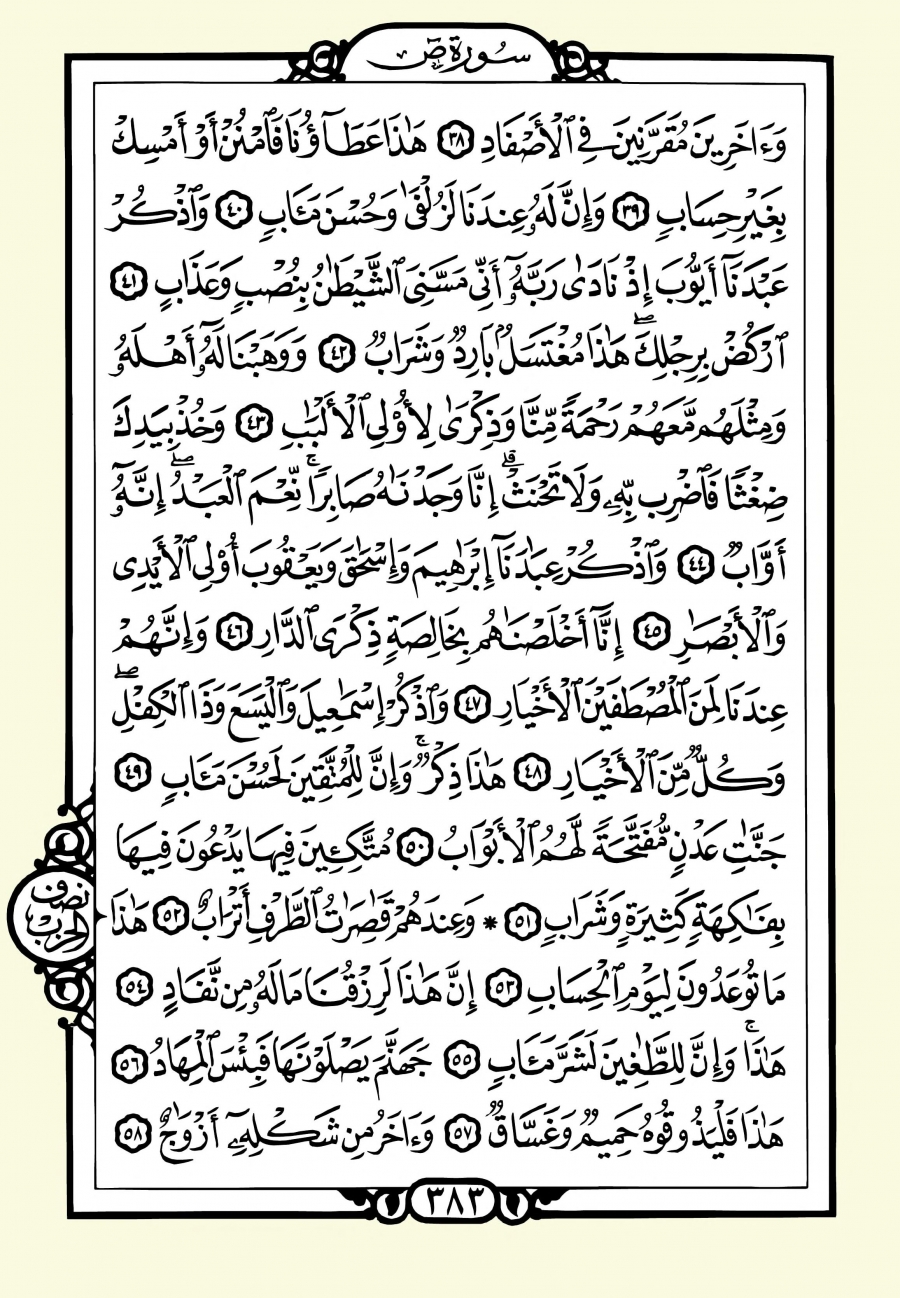 سورة ص
وَءَاخَرِينَ مُقَرَّنِينَ فِي ٱلْأَصْفَادِ ٣٨ هَٰذَا عَطَآؤُنَا فَٱمْنُنْ أَوْ أَمْسِكْ
بِغَيْرِ حِسَابٍ ٣٩ وَإِنَّ لَهُۥ عِندَنَا لَزُلْفَىٰ وَحُسْنَ مَـَٔابٍ ٤٠ وَٱذْكُرْ
عَبْدَنَآ أَيُّوبَ إِذْ نَادَىٰ رَبَّهُۥٓ أَنِّي مَسَّنِيَ ٱلشَّيْطَٰنُ بِنُصْبٍ وَعَذَابٍ ٤١
ٱرْكُضْ بِرِجْلِكَ ۖ هَٰذَا مُغْتَسَلٌۢ بَارِدٌ وَشَرَابٌ ٤٢ وَوَهَبْنَا لَهُۥٓ أَهْلَهُۥ
وَمِثْلَهُم مَّعَهُمْ رَحْمَةً مِّنَّا وَذِكْرَىٰ لِأُو۟لِي ٱلْأَلْبَٰبِ ٤٣ وَخُذْ بِيَدِكَ
ضِغْثًا فَٱضْرِب بِّهِۦ وَلَا تَحْنَثْ ۗ إِنَّا وَجَدْنَٰهُ صَابِرًا ۚ نِّعْمَ ٱلْعَبْدُ ۖ إِنَّهُۥٓ
أَوَّابٌ ٤٤ وَٱذْكُرْ عِبَٰدَنَآ إِبْرَٰهِيمَ وَإِسْحَٰقَ وَيَعْقُوبَ أُو۟لِي ٱلْأَيْدِي
وَٱلْأَبْصَٰرِ ٤٥ إِنَّآ أَخْلَصْنَٰهُم بِخَالِصَةٍ ذِكْرَى ٱلدَّارِ ٤٦ وَإِنَّهُمْ
عِندَنَا لَمِنَ ٱلْمُصْطَفَيْنَ ٱلْأَخْيَارِ ٤٧ وَٱذْكُرْ إِسْمَٰعِيلَ وَٱلْيَسَعَ وَذَا ٱلْكِفْلِ ۖ
وَكُلٌّ مِّنَ ٱلْأَخْيَارِ ٤٨ هَٰذَا ذِكْرٌ ۚ وَإِنَّ لِلْمُتَّقِينَ لَحُسْنَ مَـَٔابٍ ٤٩
جَنَّٰتِ عَدْنٍ مُّفَتَّحَةً لَّهُمُ ٱلْأَبْوَٰبُ ٥٠ مُتَّكِـِٔينَ فِيهَا يَدْعُونَ فِيهَا
بِفَٰكِهَةٍ كَثِيرَةٍ وَشَرَابٍ ٥١ * وَعِندَهُمْ قَٰصِرَٰتُ ٱلطَّرْفِ أَتْرَابٌ ٥٢ هَٰذَا
نصف الحزب
مَا تُوعَدُونَ لِيَوْمِ ٱلْحِسَابِ ٥٣ إِنَّ هَٰذَا لَرِزْقُنَا مَا لَهُۥ مِن نَّفَادٍ ٥٤
هَٰذَا ۚ وَإِنَّ لِلطَّٰغِينَ لَشَرَّ مَـَٔابٍ ٥٥ جَهَنَّمَ يَصْلَوْنَهَا فَبِئْسَ ٱلْمِهَادُ ٥٦
هَٰذَا فَلْيَذُوقُوهُ حَمِيمٌ وَغَسَّاقٌ ٥٧ وَءَاخَرُ مِن شَكْلِهِۦٓ أَزْوَٰجٌ ٥٨
٣٨٣